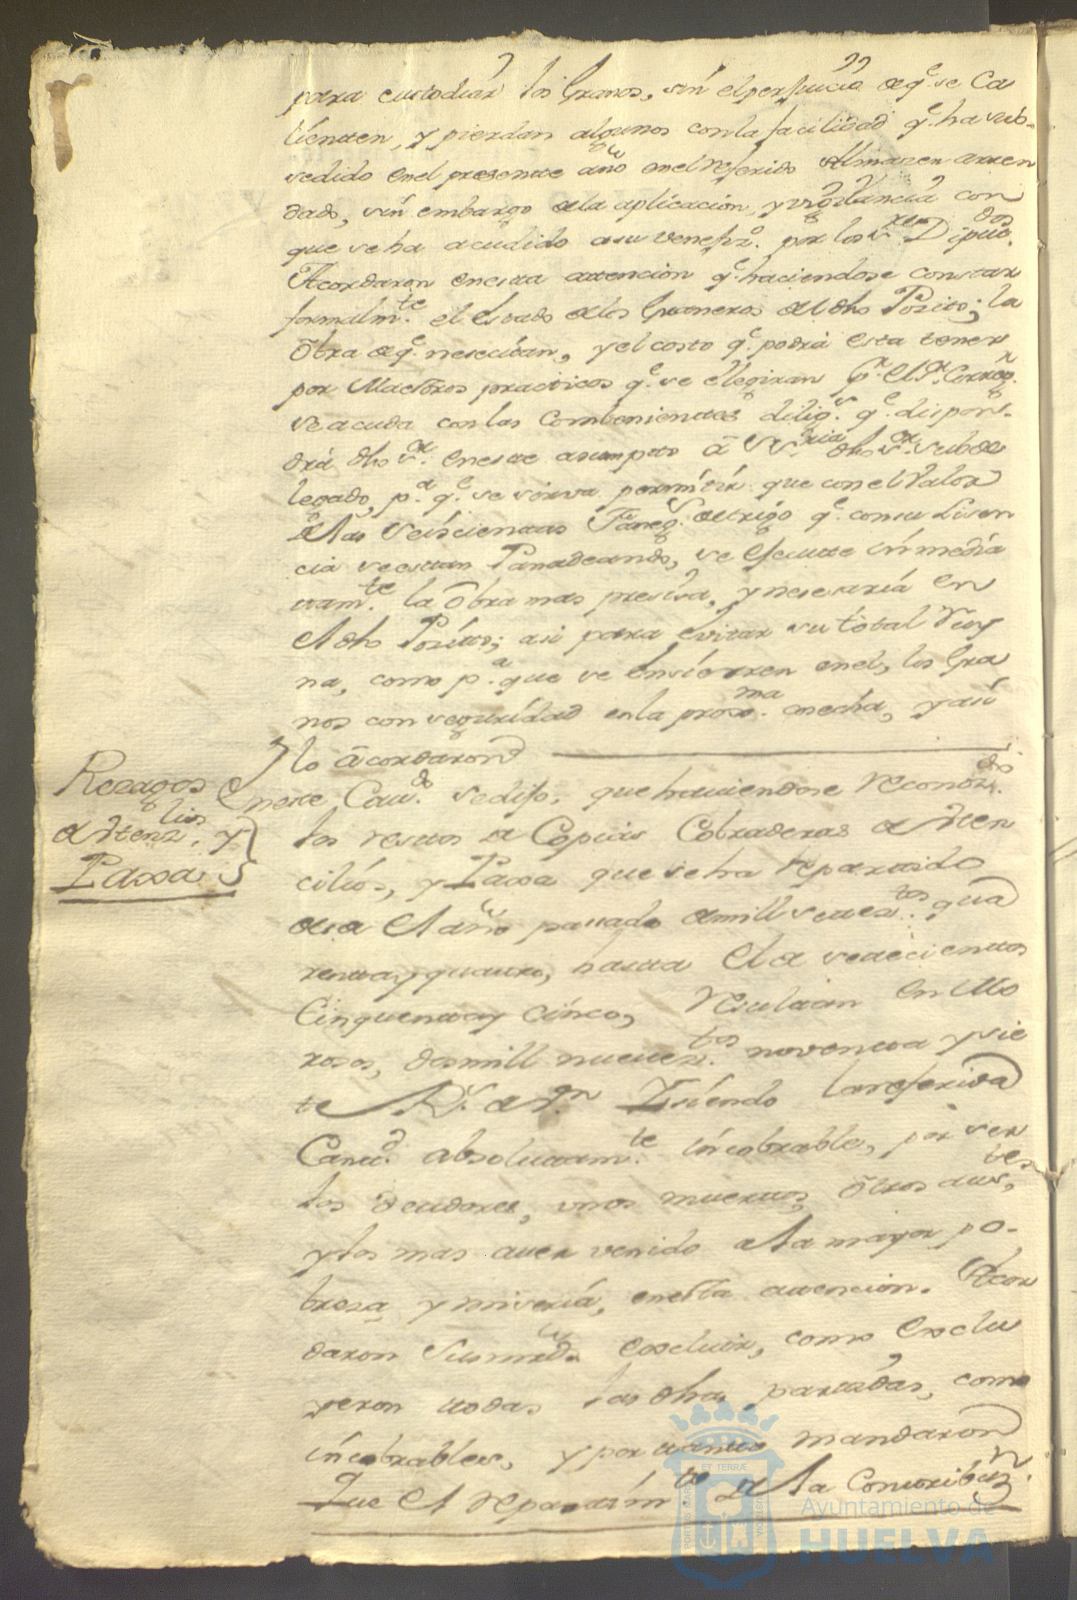 para custodiar los Granos, sin el perjuicio de q.e se Ca
lienten, y pierdan algunos con la facilidad q.e ha sub-
sedido en el presente año en el referido Almazen arren
dado, sin embargo de la aplicacion, y vigilancia con
que se ha acudido a su venefiz.o por los s.res Dipu.dos
Acordaron en esta attencion q.e haciendose constar
formalm.te el estado de los Graneros de dho Pósito; la
Obra de q.e nesecitan, y el costo q.e podrá esta tener
por Maestros practicos q.e se elegiran p.r el S.r Correg.r
se acuda con las Combenientes dilig.s q.e dispon-
drá dho s.r en este asumpto â Su S.ria dho s.r Subde
legado, p.a q.e se sirva permitir que con el Valor
de las Seiscientas Faneg.s de trigo q.e con su Lisen
cia se estan Panadeando, se efectue inmedia
tam.te la Obra mas presisa, y nesesaria en
el dho Pósito; asi para evitar su total Ruy
na, como p.a que se ensierren en el, los Gra
nos con seguridad en la prox.ma cosecha, y asi
lo acordaron
Rezagos
de Vtenz.lios y
Paxa
En este Cav.do se dijo, que haviendose reconoz.do
los restos de Copias Cobraderas de Vten
cilios, y Paxa que se ha repartido
desde el año pasado de mill setez.tos qua
renta y quatro, hasta el de setecientos
Cinquenta y Cinco, resultan en Mo
rosos, dos mill nuevez.tos noventa y sie
te R.s de V.n Y siendo la referida
Cant.d absolutam.te incobrable, por ser
los deudores, vnos muertos, otros aus.tes,
y los mas aver venido a la mayor po-
breza, y miseria, en esta attencion. Acor
daron Sus mrds. excluir, como exclu
yeron todas las dhas partidas, como
incobrables, y por tanto mandaron
Que el repartim.to de la Contribuz.n
PORTUS MARIS
ET TERRÆ
CUSTODIA
Ayuntamiento de
HUELVA